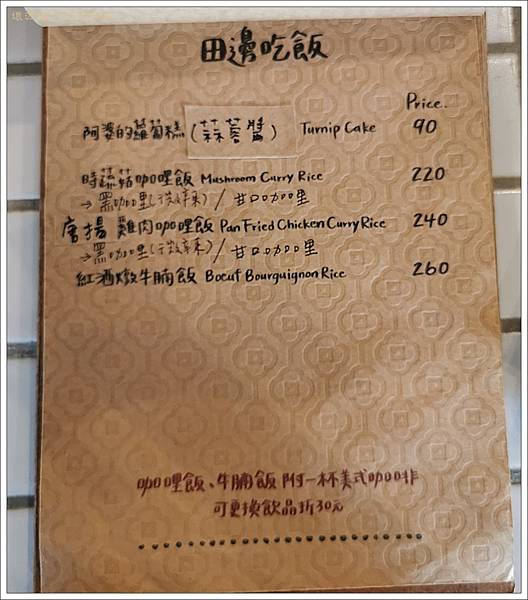 田邊吃飯
Price.
阿婆的蘿蔔糕(蒜蓉醬) Turnip Cake 90
時蔬菇咖哩飯 Mushroom Curry Rice 220
→黑咖哩(微辣)/甘口咖哩
唐揚雞肉咖哩飯 Pan Fried Chicken Curry Rice 240
→黑咖哩(微辣)/甘口咖哩
紅酒燉牛腩飯 Boeuf Bourguignon Rice 260
咖哩飯、牛腩飯附一杯美式咖啡
可更換飲品折30元